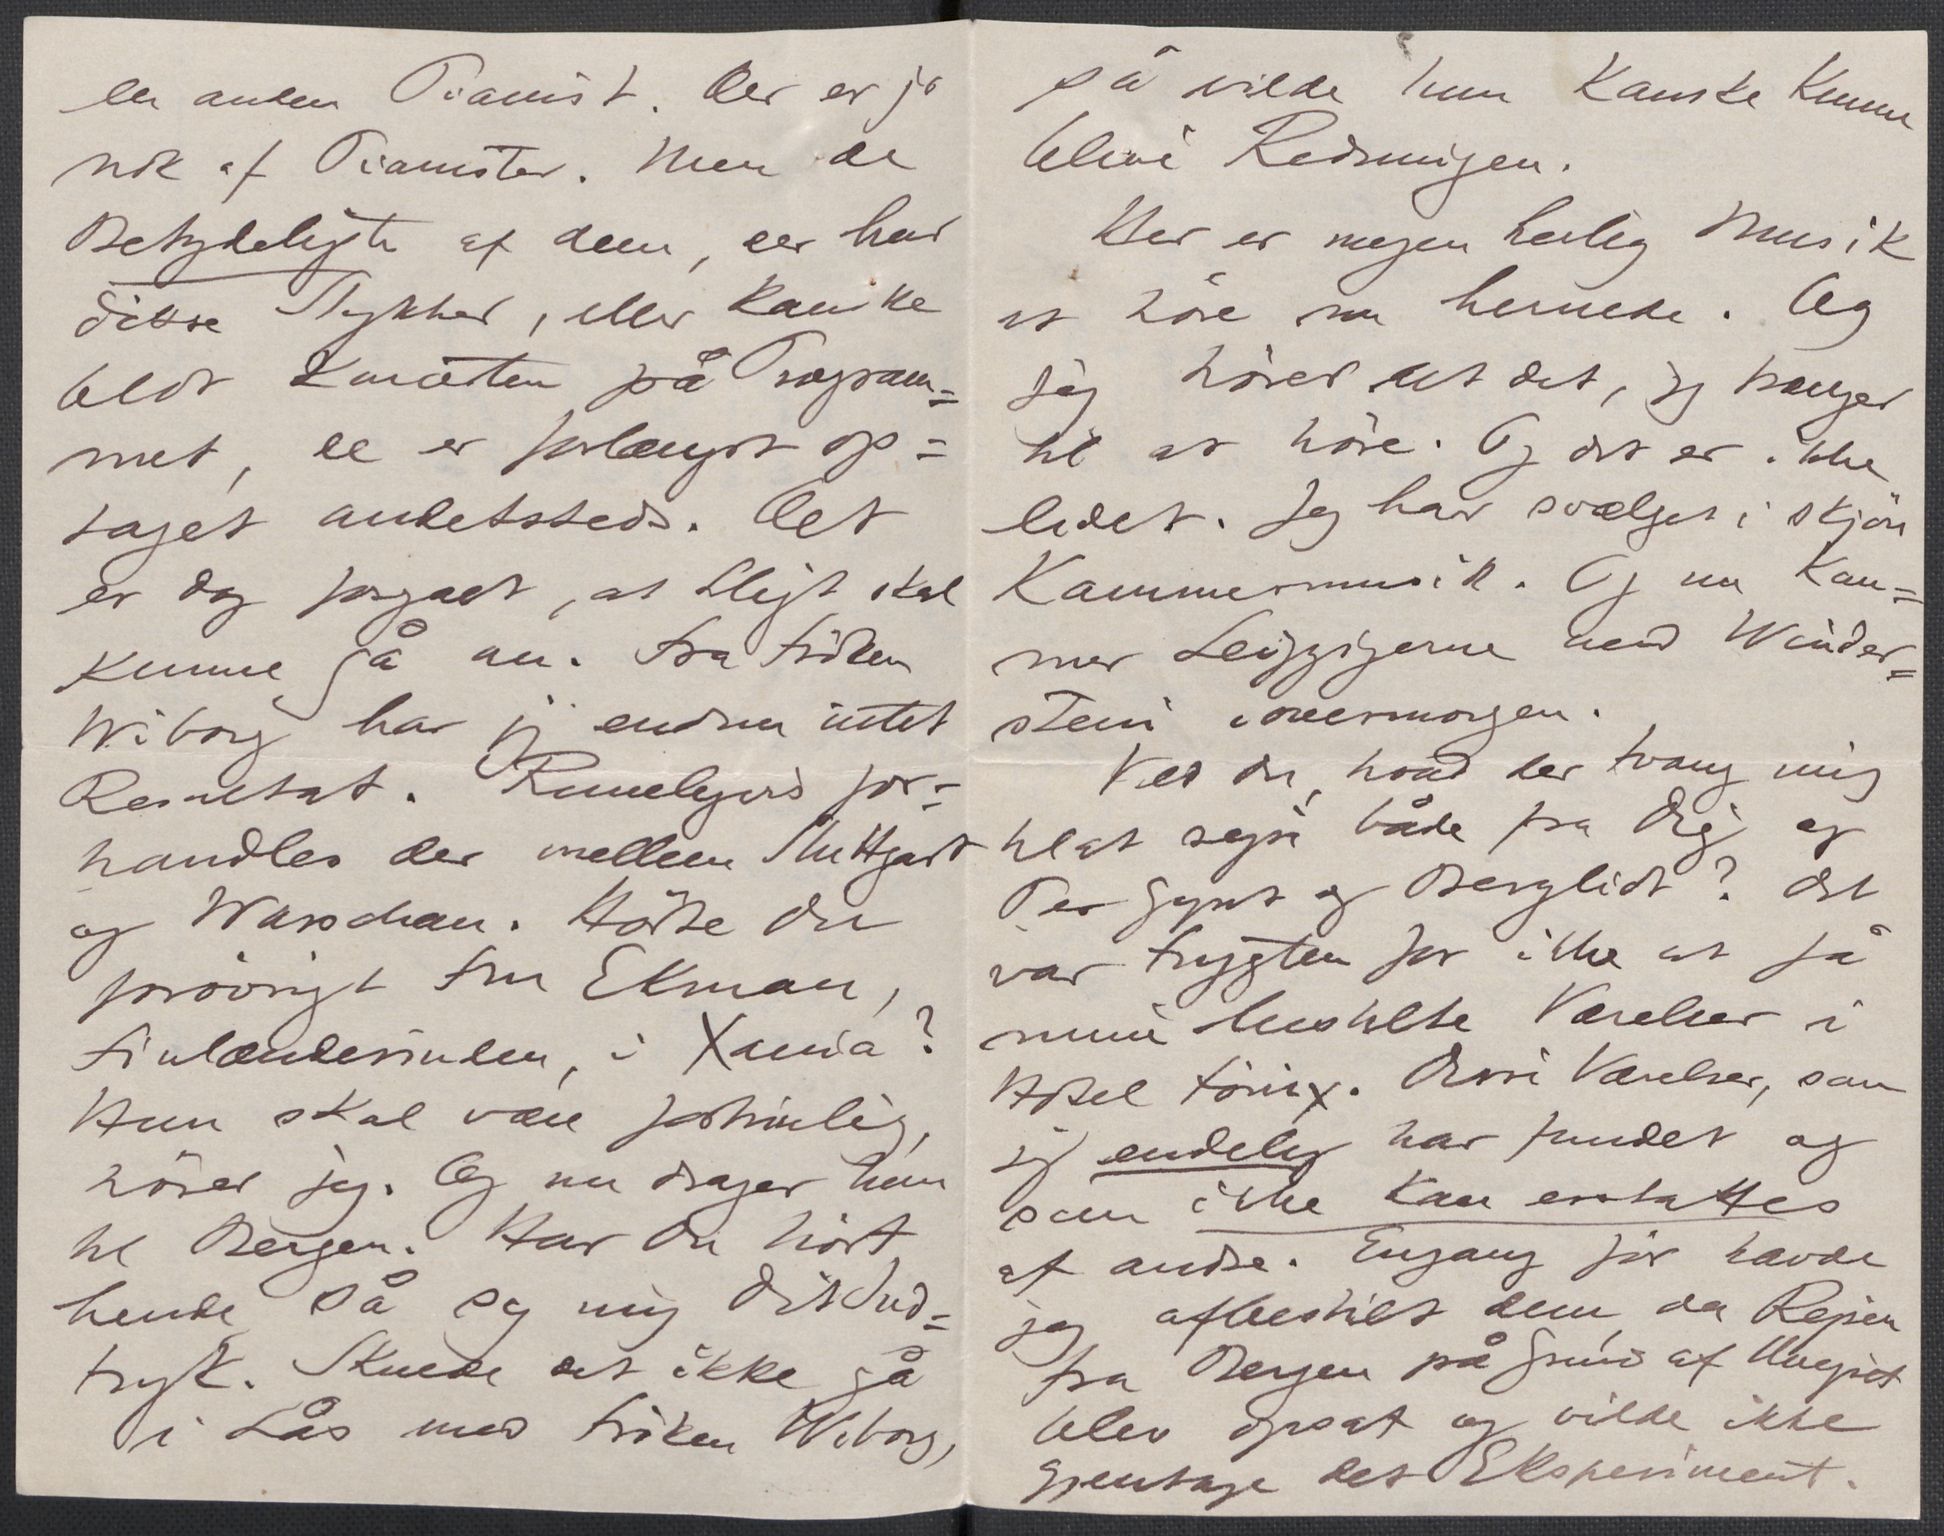 en anden Pianist. Der er jo
nok af Pianister. Men de
Betydeligste af dem, der har
disse Stykker, eller kanske
blot Koncerten på Program=
met, de er forlængst op=
taget andetsteds. Det
er dog forgact, at Sligt skal
kunne gå an. Fra Frøken
Wiborg har jeg endnu intet
Resultat. Rimeligvis for=
handles der mellem Stuttgart
og Warschau. Hörte Du
forövrigt Fru Ekman,
Finlænderinden, i Xania?
Hun skal være fortrinlig,
hörer jeg. Og nu drager hun
til Bergen. Har Du hört
hende så sig mig Dit Ind=
tryk. Skulde det ikke gå
i Lås med Fröken Wiborg,
så vilde hun kanske kunne
blive Redningen.
Her er megen herlig Musik
at höre nu hernede. Og
jeg hörer alt det, jeg trænger
til at höre. Og det er ikke
lidet. Jeg har svælget i skjön
Kammermusik. Og nu kom=
mer Leipzigerne med Winder=
stein iovermorgen.
Ved Du, hvad der tvang mig
til at rejse både fra Dig og
Peer Gynt og Bergliot? Det
var Frygten for ikke at få
mine bestilte Værelser i
Hotel Fönix. Disse Værelser, som
jeg endelig har fundet og
som ikke kan erstattes
af andre. Engang för havde
jeg afbestilt dem, da Rejsen
fra Bergen på Grund af Uvejret
blev opsat og vilde ikke
gjentage det Eksperiment.